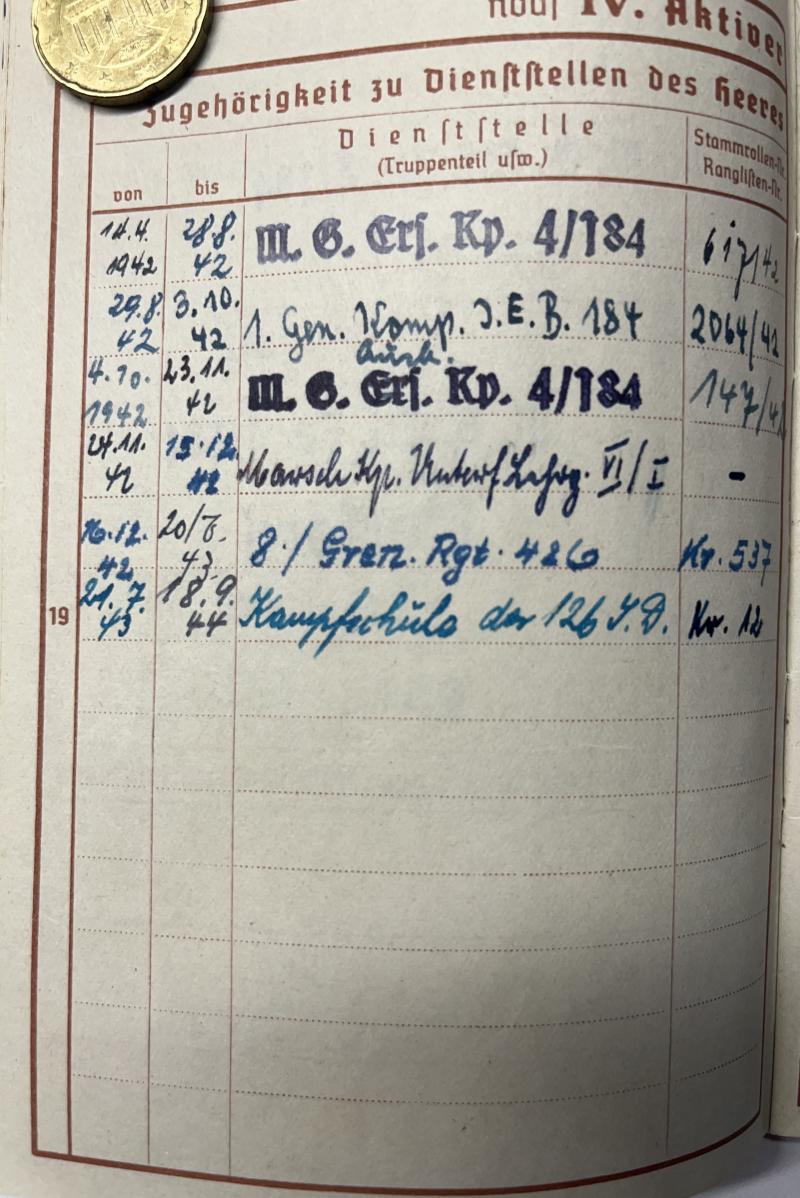 noch IV. Aktiver
Zugehörigkeit zu Dienststellen des Heeres
von
bis
Dienststelle
(Truppenteil usw.)
Stammrollen-Nr.
Ranglisten-Nr.
14.4. 1942
28.8. 42
M. G. Ers. Kp. 4/184
617/42
29.8. 42
3.10. 42
1. Gen. Komp. I.E.B. 184
2064/42
4.10. 1942
23.11. 42
Ausb.
M. G. Ers. Kp. 4/184
147/42
24.11. 42
15.12. 42
Marsch Kp. Unterf Lehrg. VI/I
-
16.12. 42
20/7. 43
8./ Gren. Rgt. 426
Kr. 537
21.7. 43
18.9. 44
Kampfschule der 126 I.D.
Kr. 12
19